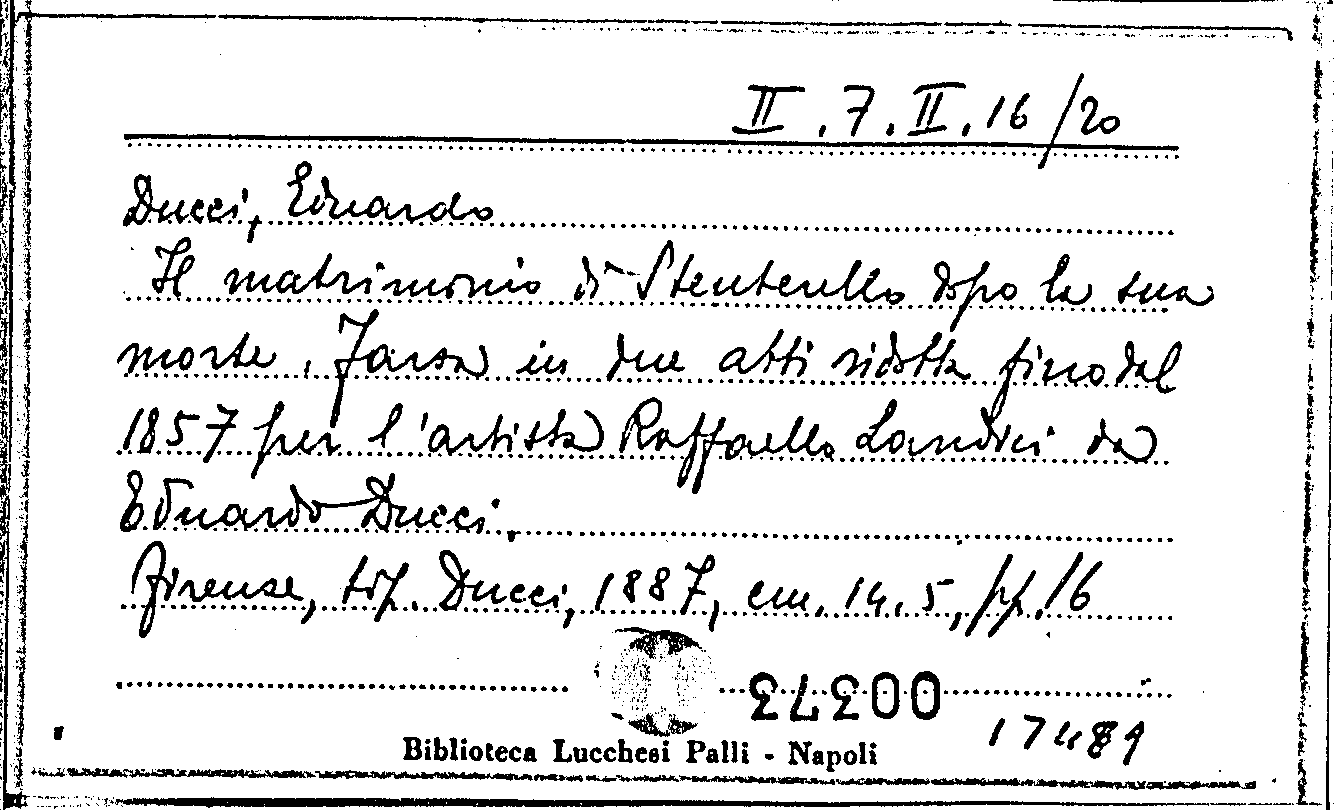 II.7.II.16/20
Ducci, Eduardo
Il matrimonio di Stenterello dopo la sua
morte. Farsa in due atti ridotta fino dal
1857 per l'artista Raffaello Landini da
Eduardo Ducci.
Firenze, tip. Ducci, 1887, cm. 14.5, pp. 16
00373
17489
Biblioteca Lucchesi Palli - Napoli